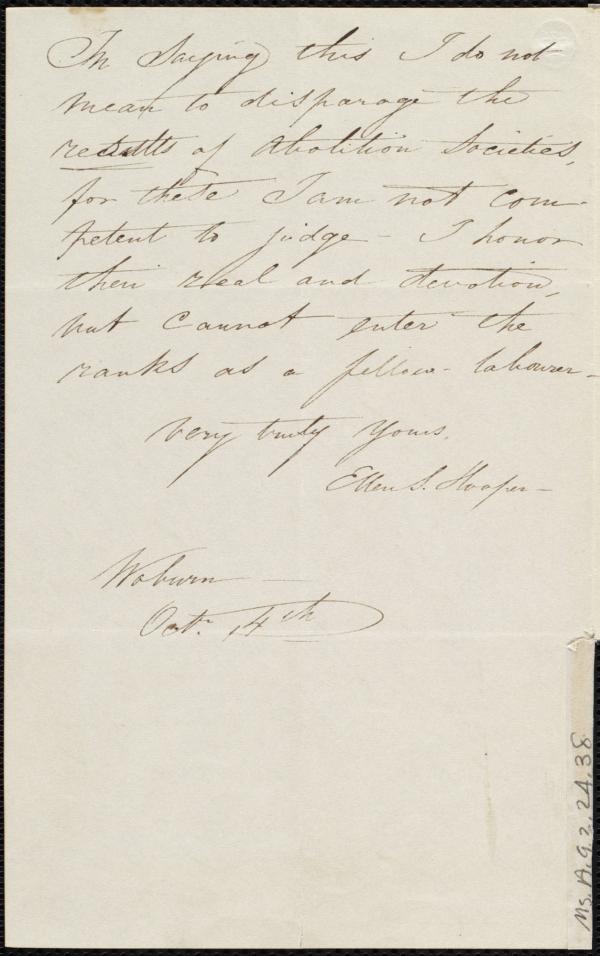 In saying this I do not
mean to disparage the
results of Abolition Societies,
for these I am not com-
petent to judge - I honor
their zeal and devotion,
but cannot enter the
ranks as a fellow-labourer -
very truly yours.
Ellen S. Hooper -
Woburn -
Octr. 14th
Ms. A. 9. 2. 24. 38